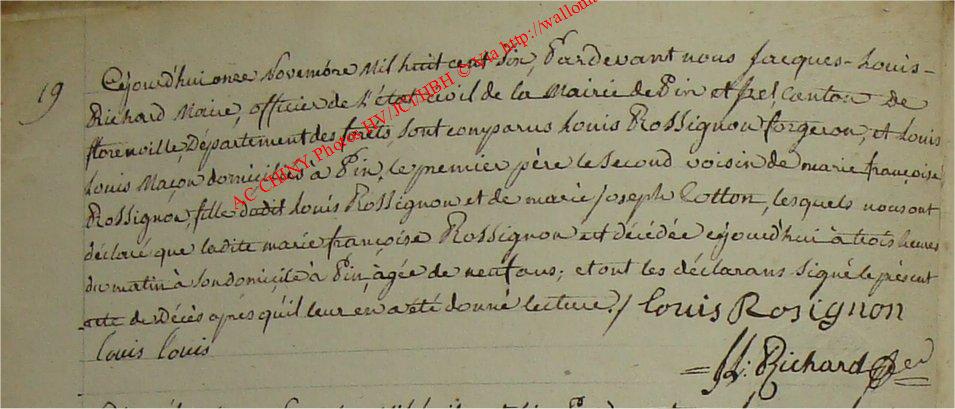 19
Cejourd'hui onze Novembre Mil huit cent dix, Pardevant nous Jacques-Louis-
Richard Maire, officier de L'état civil de la Mairie de Pin et Canton de
florenville, Département des forêts, sont comparus Louis Rossignon forgeron, et Louis
Louis Maçon domiciliés à Pin, le premier père le second voisin de marie françoise
Rossignon, fille dudit Louis Rossignon et de marie joseph Cotton, lesquels nous ont
déclaré que ladite marie françoise Rossignon est décédée cejourd'hui à trois heures
du matin à son domicile à Pin, agée de neuf ans; et ont les déclarans signé le présent
acte de Décès après qu'il leur en a été donné lecture./ Louis Rosignon
Louis Louis
Richard
AC CHINY, Photos HV/JCT/HBH © Via http://wallonia